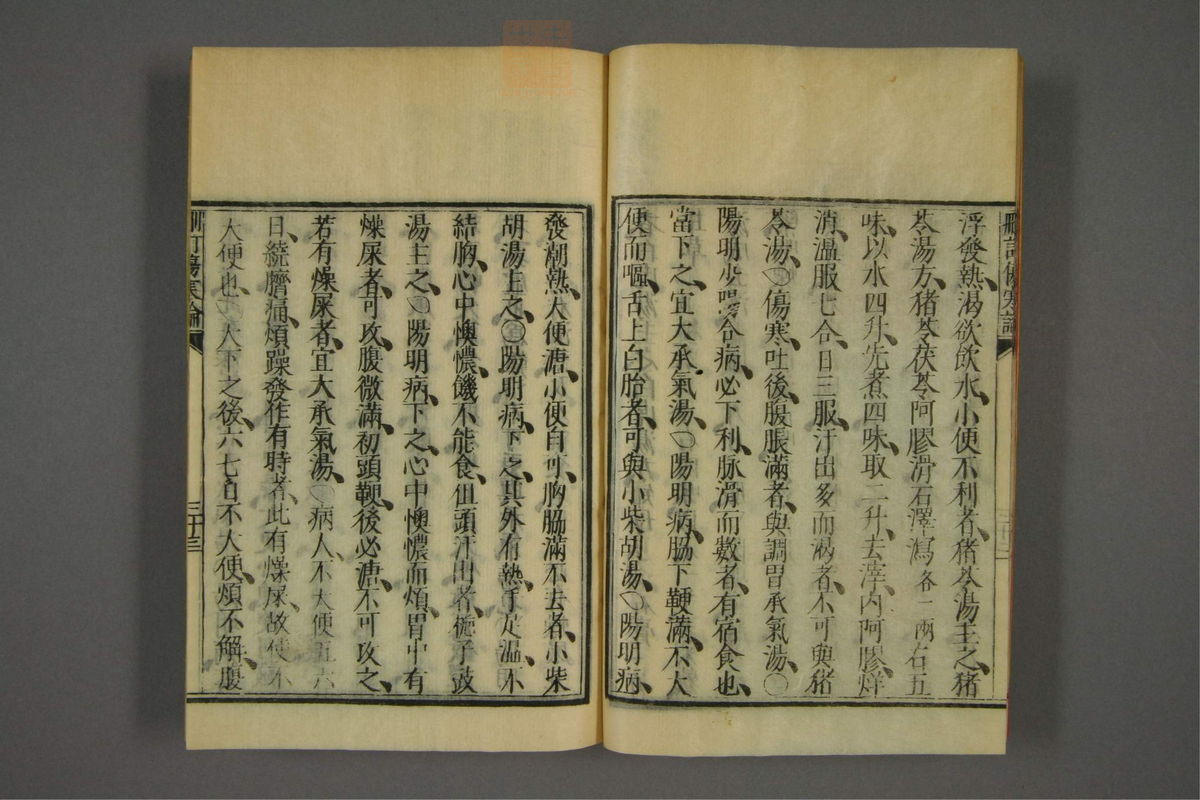 刪訂傷寒論
浮發熱、渴欲飲水、小便不利者、猪苓湯主之、猪
苓湯方、猪苓茯苓阿膠滑石澤瀉各一兩右五
味、以水四升、先煮四味、取二升、去滓、內阿膠烊
消、溫服七合日三服、汗出多而渴者、不可與猪
苓湯、〇傷寒吐後、腹脹滿者、與調胃承氣湯、〇
陽明少陽合病、必下利、脉滑而數者、有宿食也、
當下之、宜大承氣湯、〇陽明病、脇下鞕滿、不大
便而嘔、舌上白胎者、可與小柴胡湯、〇陽明病、
發潮熱、大便溏、小便自可、胸脇滿不去者、小柴
胡湯主之、〇陽明病、下之、其外有熱、手足溫、不
結胸、心中懊憹、饑不能食、但頭汗出者、梔子豉
湯主之、〇陽明病、下之、心中懊憹而煩、胃中有
燥屎者、可攻、腹微滿、初頭鞕、後必溏、不可攻之、
若有燥屎者、宜大承氣湯、〇病人、不大便五六
日、繞臍痛、煩躁發作有時者、此有燥屎、故使不
大便也、〇大下之後、六七日不大便、煩不解、腹
刪訂傷寒論
三十三